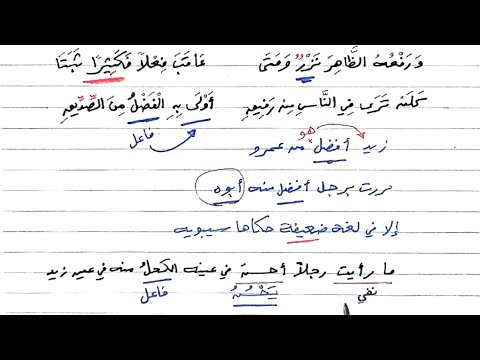 وَرَفْعُهُ الظَّاهِرَ نَزْرٌ وَمَتَى عَاقَبَ فِعْلاً فَكَثِيرًا ثَبَتَا
كَلَنْ تَرَى فِي النَّاسِ مِنْ رَفِيقِ أَوْلَى بِهِ الْفَضْلُ مِنَ الصِّدِّيقِ
هو فاعل
زيد أفضل من عمرو
مررت برجل أفضل منه أبوه
إلا في لغة ضعيفة حكاها سيبويه
ما رأيت رجلاً أحسن في عينه الكحلُ منه في عين زيد
نفي يَحْسُنُ فاعل